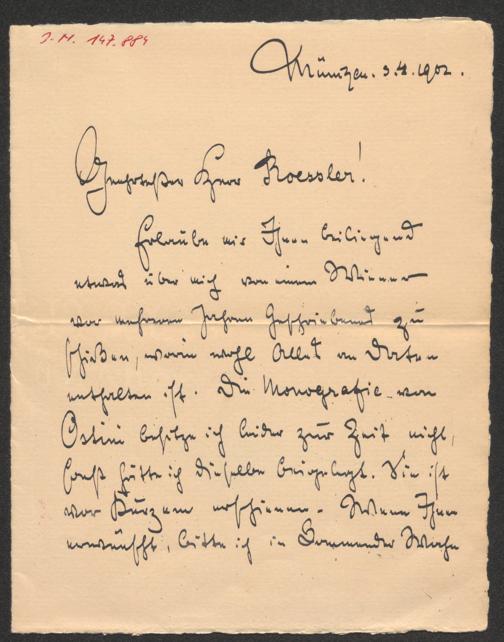 J.N. 147.884
München. 3.4.1902.
Geehrtester Herr Roessler!
Erlaube mir Ihnen beiliegend
etwas über mich von einem Wiener
vor mehreren Jahren Geschriebenes zu
schicken, worin wohl Alles an Daten
enthalten ist. Die Monografie von
Ostini besitze ich leider zur Zeit nicht,
sonst hätte ich dieselbe beigelegt. Sie ist
vor Kurzem erschienen. Wenn Ihnen
erwünscht, bitte ich in kommender Woche